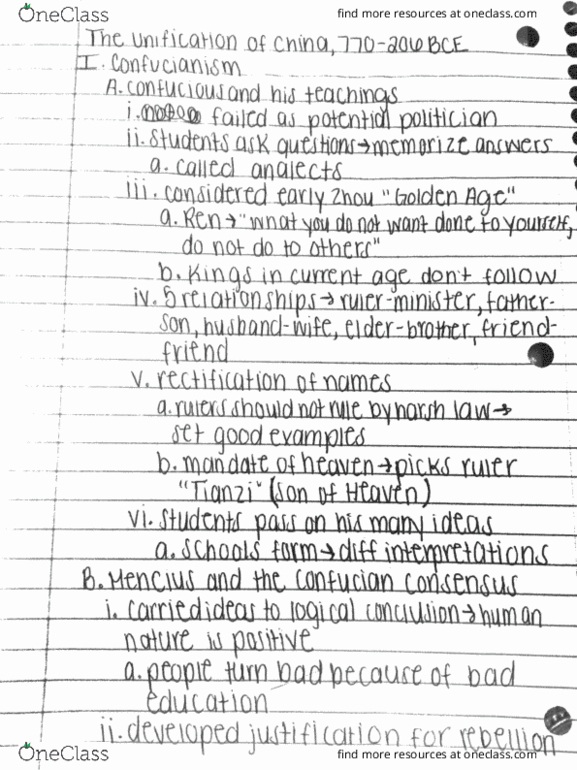 OneClass
find more resources at oneclass.com
The unification of China, 770-206 BCE
I. Confucianism
A. Confucious and his teachings
i. failed as potential politician
ii. Students ask questions→memorize answers
a. called analects
iii. considered early Zhou "Golden Age"
a. Ren→"what you do not want done to yourself,
do not do to others"
b. Kings in current age don't follow
iv. 5 relationships→ruler-minister, father-
son, husband-wife, elder-brother, friend-
friend
v. rectification of names
a. rulers should not rule by harsh law→
set good examples
b. mandate of heaven→picks ruler
"Tianzi" (son of Heaven)
vi. Students pass on his many ideas
a. Schools form→diff interpretations
B. Mencius and the Confucian consensus
i. carried ideas to logical conclusion→human
nature is positive
a. people turn bad because of bad
education
ii. developed justification for rebellion
OneClass
find more resources at oneclass.com